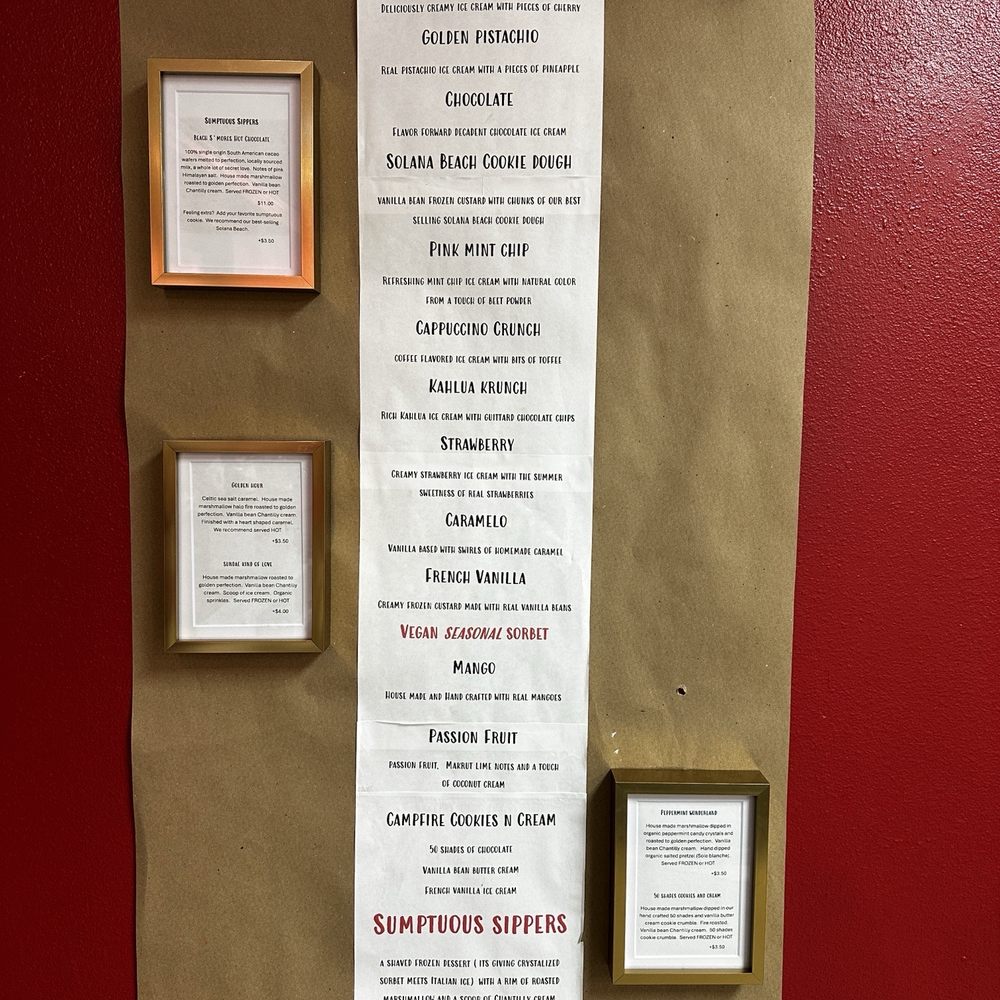 Deliciously creamy ice cream with pieces of cherry
Golden Pistachio
Real pistachio ice cream with a pieces of pineapple
Chocolate
Flavor forward decadent chocolate ice cream
Solana Beach Cookie Dough
Vanilla bean frozen custard with chunks of our best
selling Solana Beach cookie dough
Pink mint chip
Refreshing mint chip ice cream with natural color
from a touch of beet powder
Cappuccino Crunch
Coffee flavored ice cream with bits of toffee
Kahlua krunch
Rich Kahlua ice cream with Guittard chocolate chips
Strawberry
Creamy strawberry ice cream with the summer
sweetness of real strawberries
Caramelo
Vanilla based with swirls of homemade caramel
French Vanilla
Creamy frozen custard made with real vanilla beans
Vegan seasonal sorbet
Mango
House made and Hand crafted with real mangoes
Passion Fruit
Passion fruit, Makrut lime notes and a touch
of coconut cream
Campfire Cookies n Cream
50 shades of chocolate
Vanilla bean butter cream
French vanilla ice cream
Sumptuous sippers
a shaved frozen dessert ( its giving crystalized
sorbet meets Italian ice) with a rim of roasted
marshmallow and a scoop of Chantilly cream
Sumptuous Sippers
Beach S'mores Hot Chocolate
100% single origin South American cacao
wafers melted to perfection, locally sourced
milk, a whole lot of secret love. Notes of pink
Himalayan salt. House made marshmallow
roasted to golden perfection. Vanilla bean
Chantilly cream. Served FROZEN or HOT
$11.00
Feeling extra? Add your favorite sumptuous
cookie. We recommend our best-selling
Solana Beach.
+$3.50
Golden Hour
Celtic sea salt caramel. House made
marshmallow halo fire roasted to golden
perfection. Vanilla bean Chantilly cream.
Finished with a heart shaped caramel.
We recommend served HOT
+$3.50
Sundae kind of love
House made marshmallow roasted to
golden perfection. Vanilla bean Chantilly
cream. Scoop of ice cream. Organic
sprinkles. Served FROZEN or HOT
+$4.00
Peppermint wonderland
House made marshmallow dipped in
organic peppermint candy crystals and
roasted to golden perfection. Vanilla
bean Chantilly cream. Hand dipped
organic salted pretzel (Sole blanche).
Served FROZEN or HOT
+$3.50
50 shades cookies and cream
House made marshmallow dipped in our
hand crafted 50 shades and vanilla butter
cream cookie crumble. Fire roasted.
Vanilla bean Chantilly cream. 50 shades
cookie crumble. Served FROZEN or HOT
+$3.50